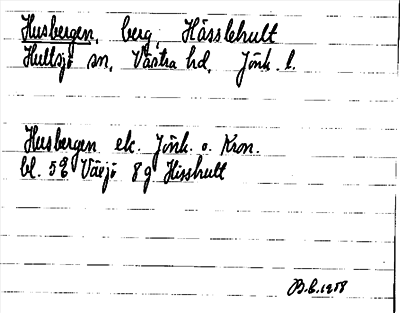 Husbergen, berg, Hässlehult
Hultsjö sn, Västra hd, Jönk. l.
Husbergen ek. Jönk. o. Kron.
bl. 5E Växjö 8g Hisshult
B.E. 1958